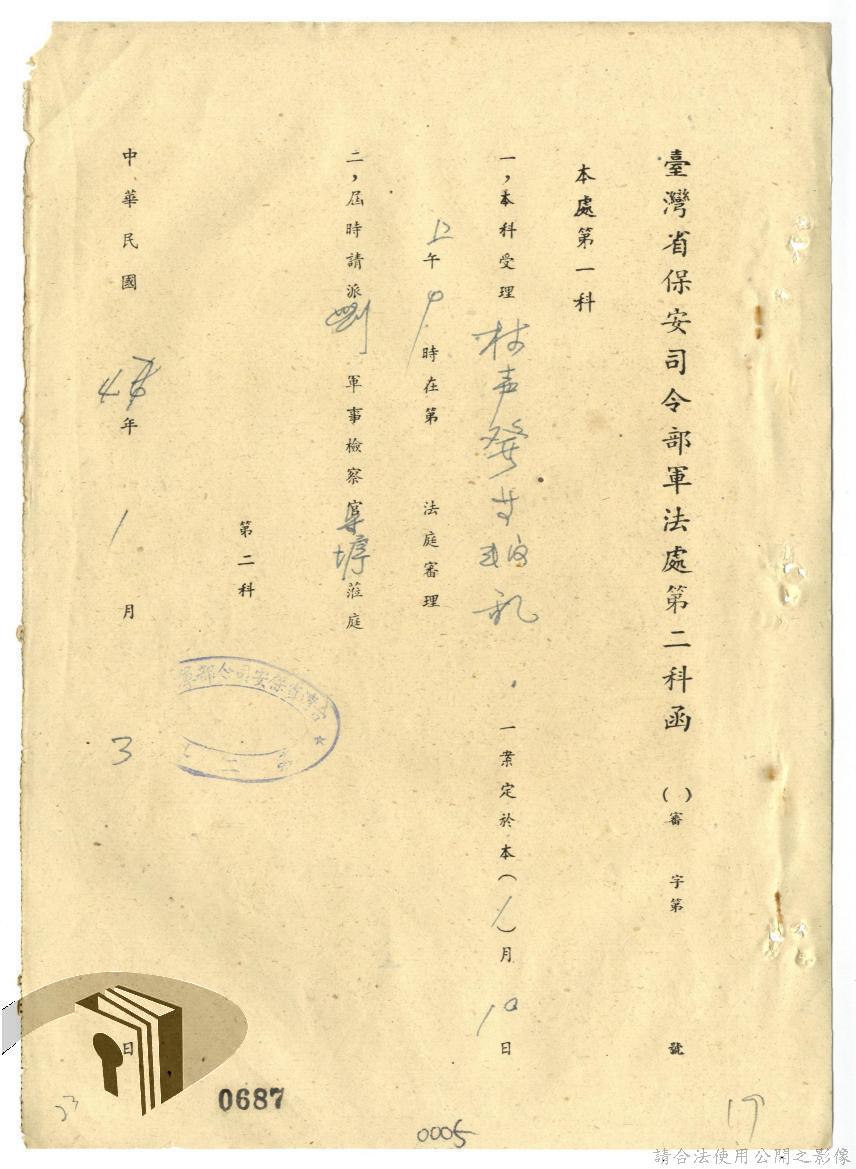 臺灣省保安司令部軍法處第二科函 ( )審 字第 號
本處第一科
一,本科受理 林声發等叛乱 一案定於本(1)月10日
上午9時在第 法庭審理
二,屆時請派劉 軍事檢察官 蒞庭
第二科
台灣省保安司令部軍
第二
中華民國 年1月3日
0687
0005
請合法使用公開之影像